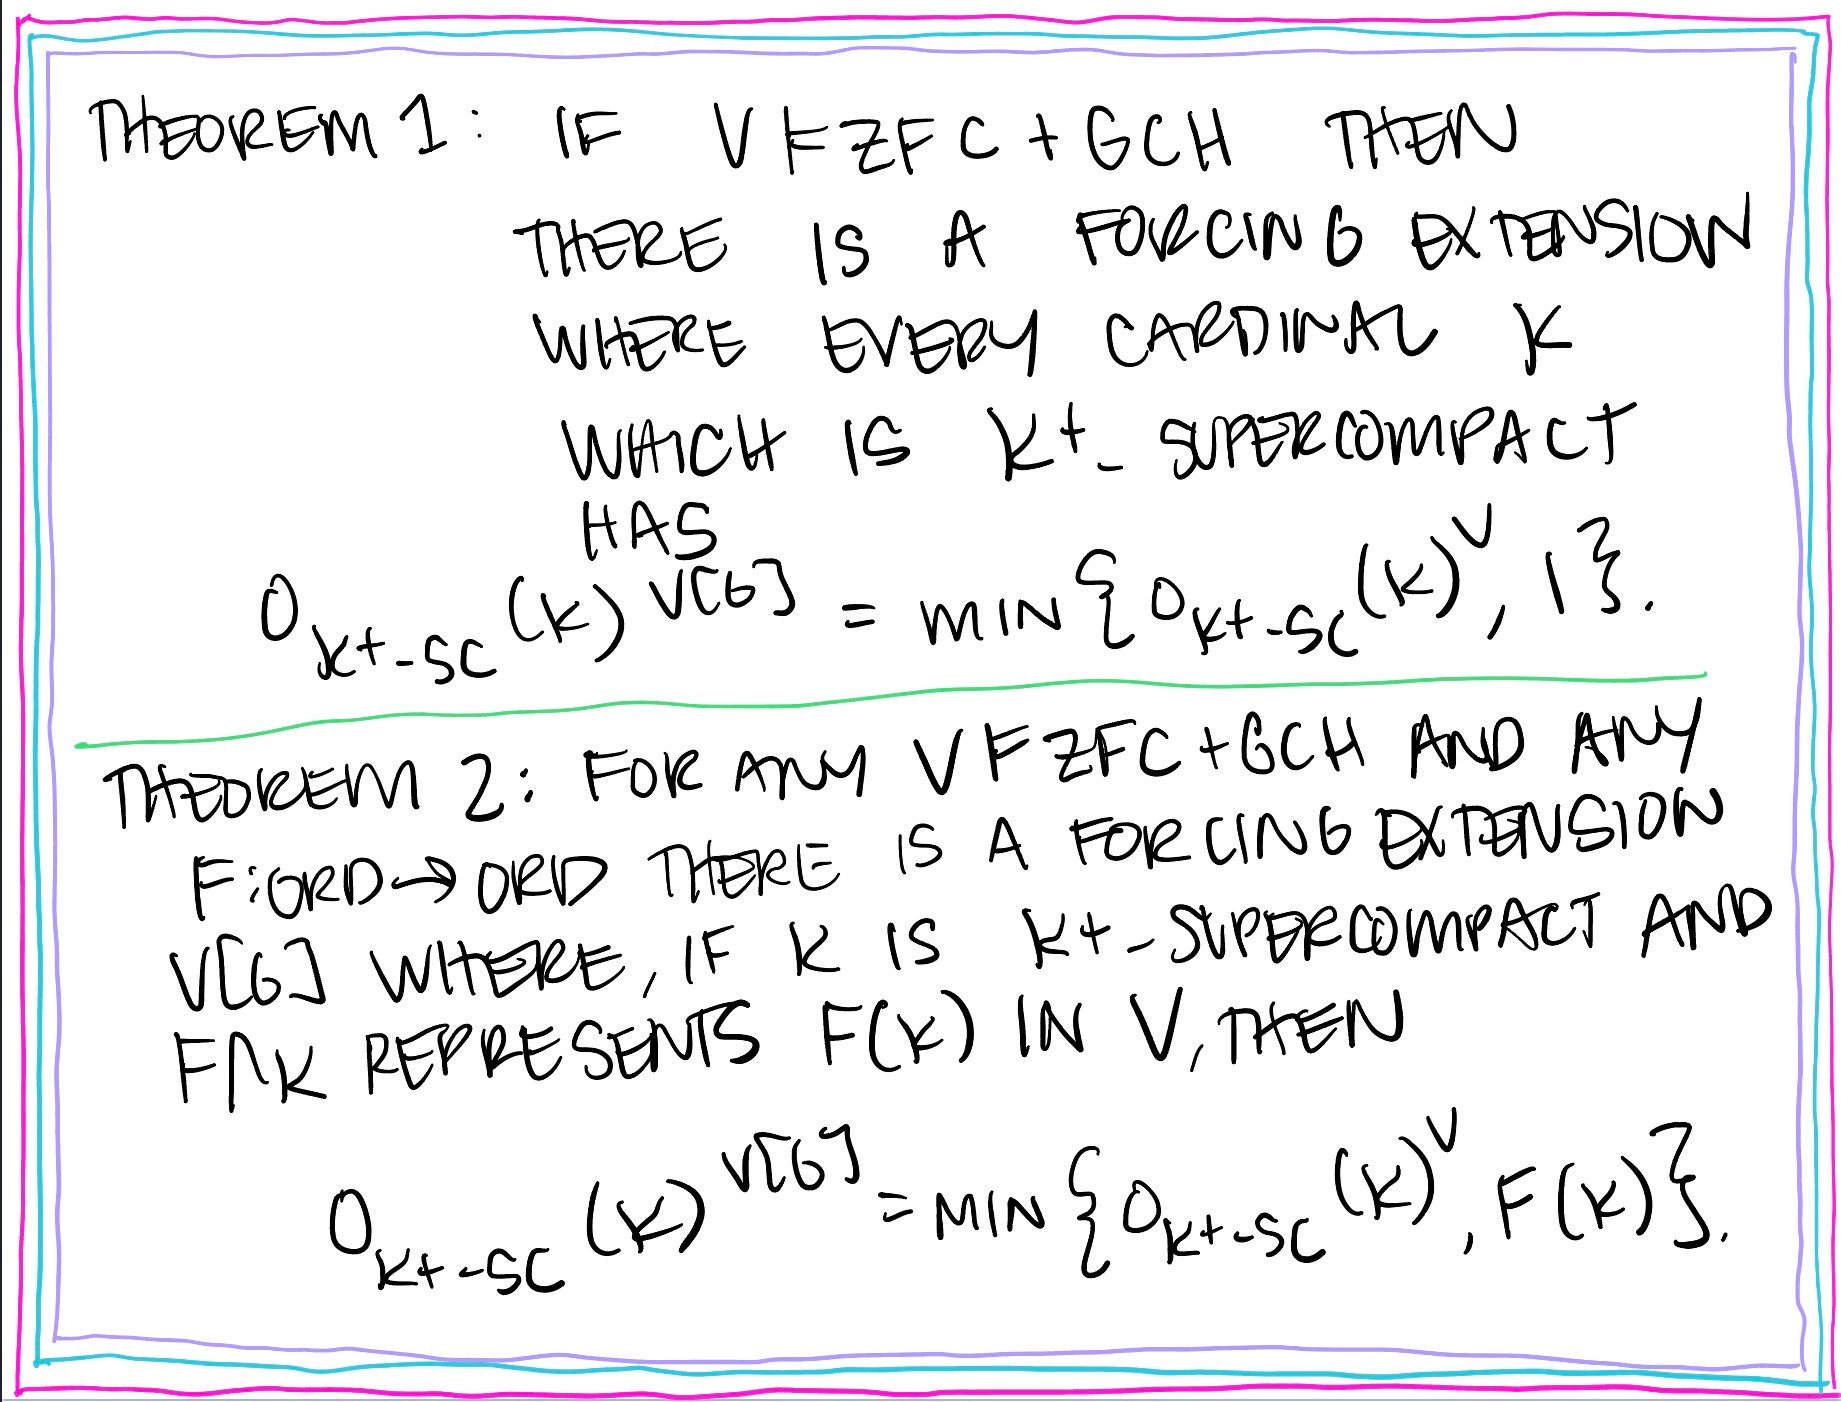 THEOREM 1: IF V ⊨ ZFC + GCH THEN
THERE IS A FORCING EXTENSION
WHERE EVERY CARDINAL κ
WHICH IS κ+-SUPERCOMPACT
HAS
O_κ+-SC (κ)^V[G] = MIN {O_κ+-SC (κ)^V, 1}.
THEOREM 2: FOR ANY V ⊨ ZFC + GCH AND ANY
F: ORD → ORD THERE IS A FORCING EXTENSION
V[G] WHERE, IF κ IS κ+-SUPERCOMPACT AND
F↾κ REPRESENTS F(κ) IN V, THEN
O_κ+-SC (κ)^V[G] = MIN {O_κ+-SC (κ)^V, F(κ)}.